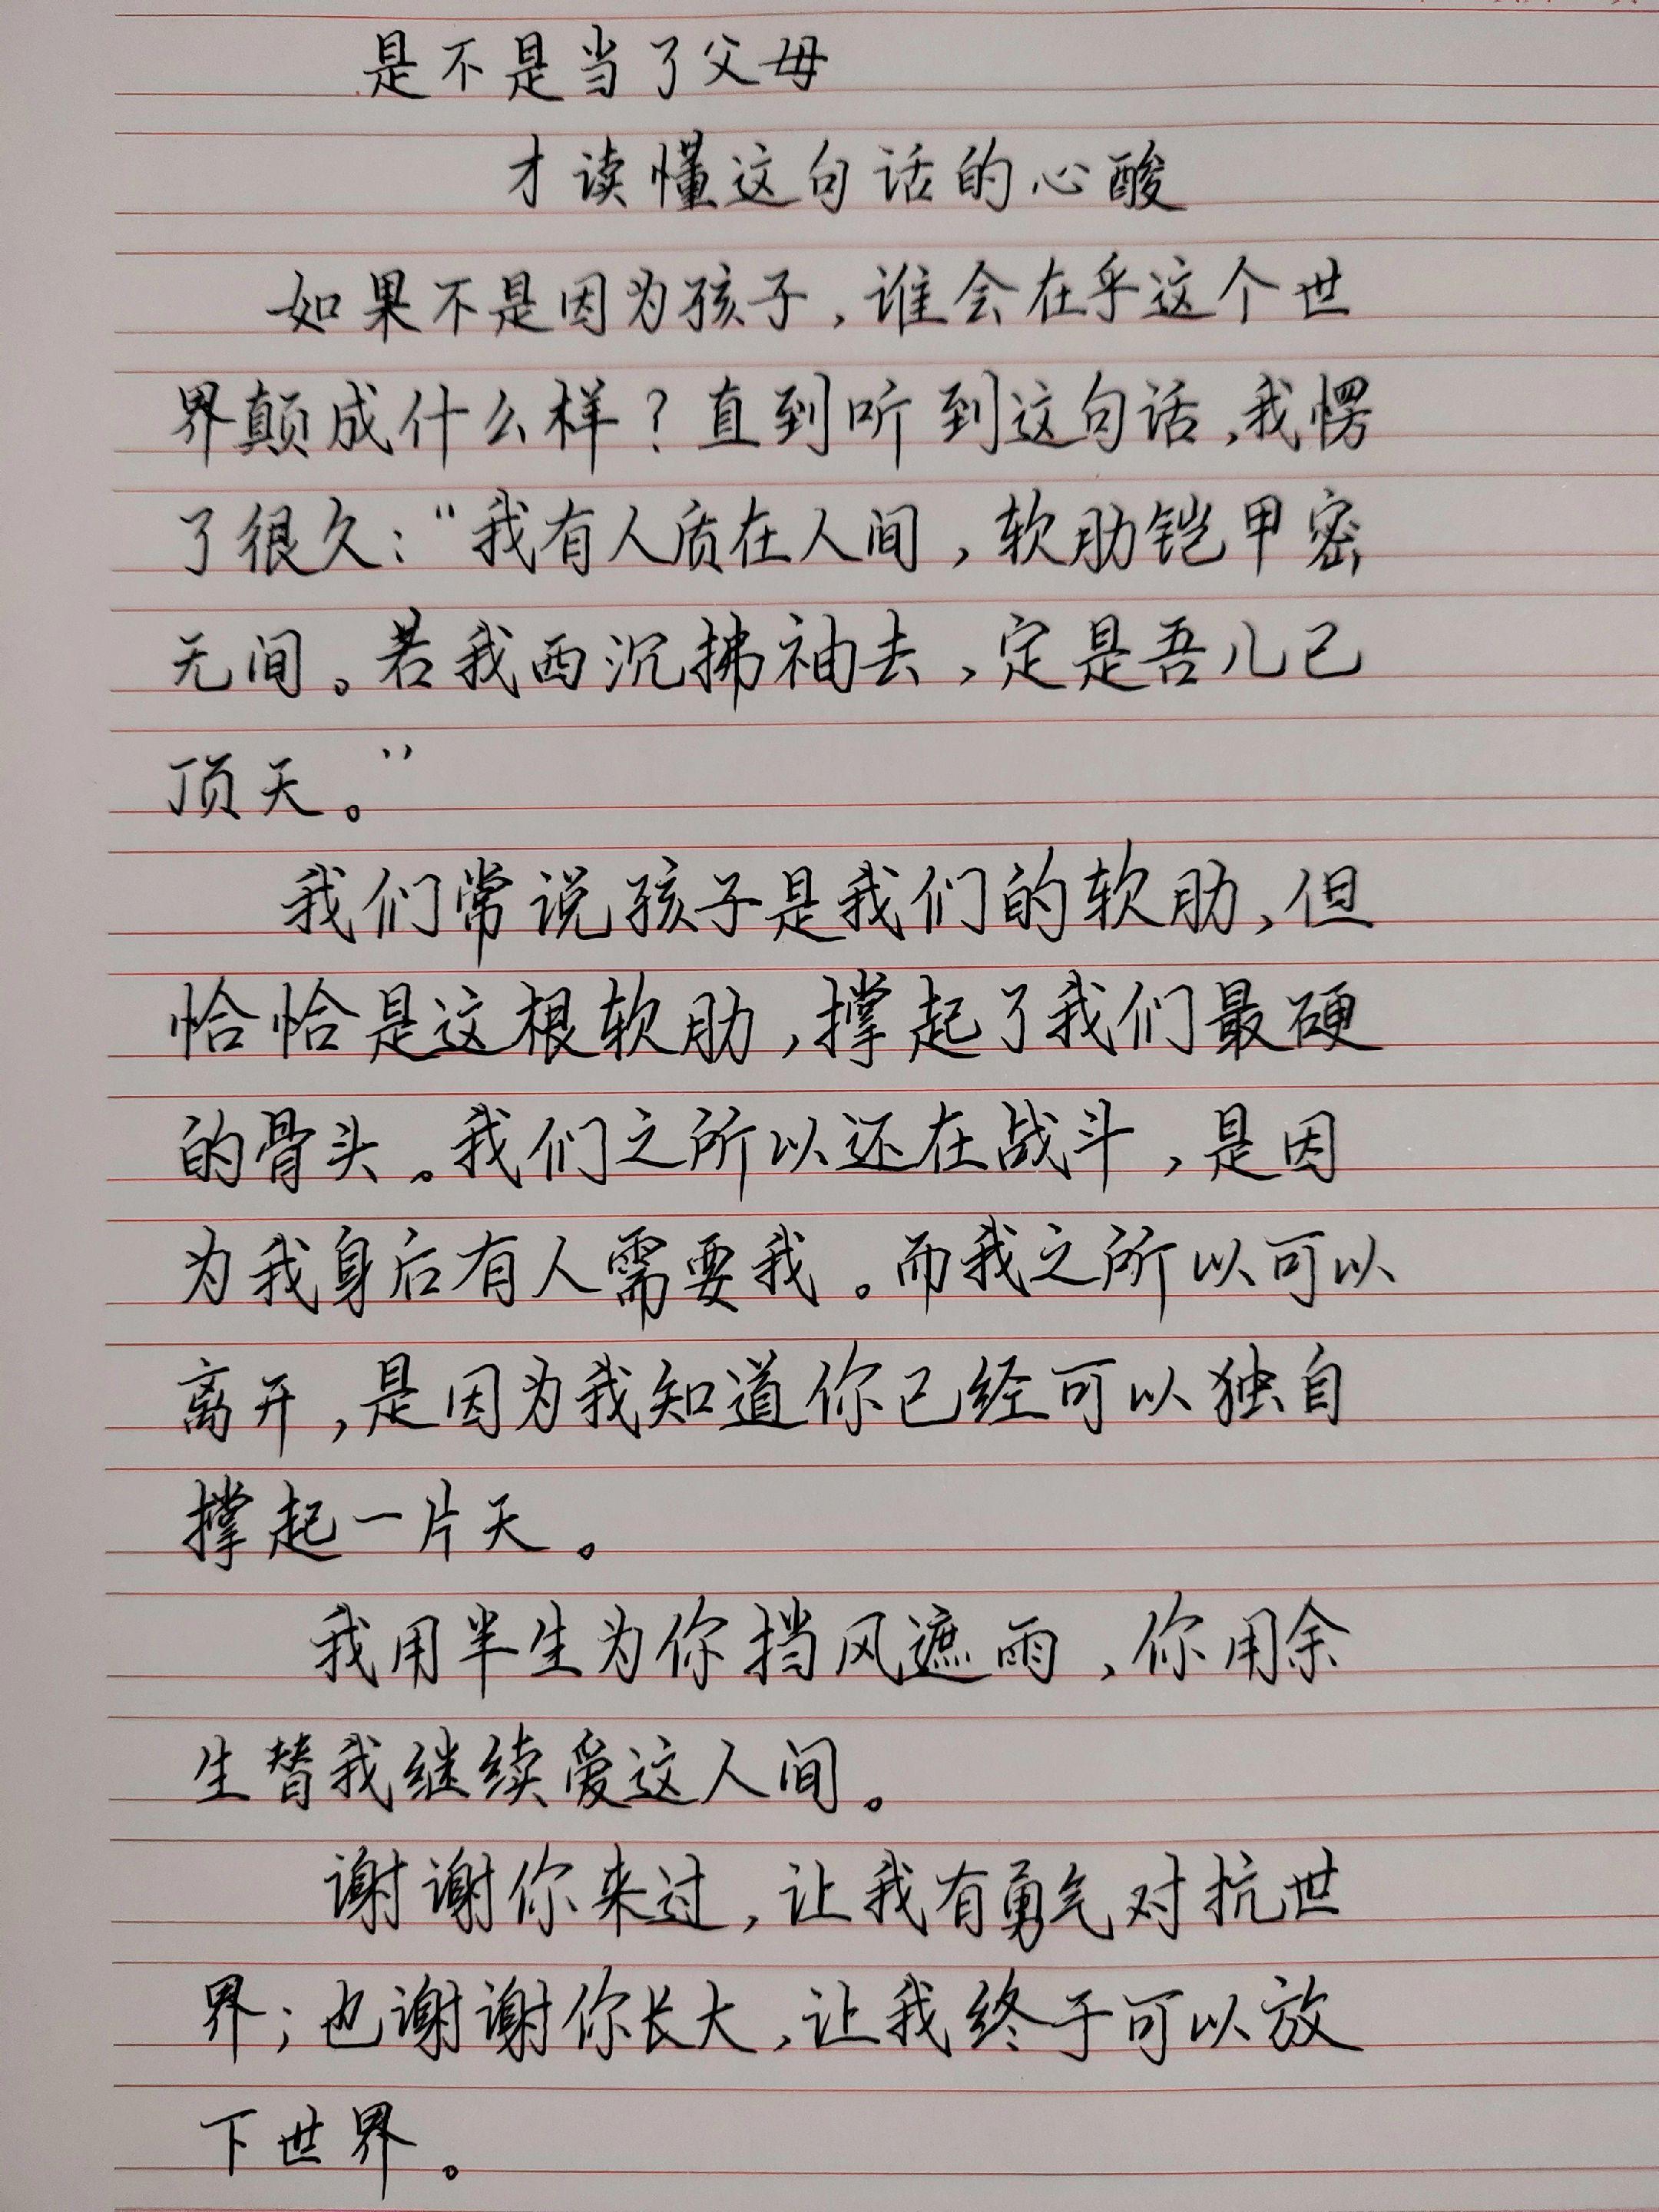 是不是当了父母
才读懂这句话的心酸
如果不是因为孩子,谁会在乎这个世
界颠成什么样?直到听到这句话,我愣
了很久:“我有人质在人间,软肋铠甲密
无间。若我西沉拂袖去,定是吾儿已
顶天。”
我们常说孩子是我们的软肋,但
恰恰是这根软肋,撑起了我们最硬
的骨头。我们之所以还在战斗,是因
为我身后有人需要我。而我之所以可以
离开,是因为我知道你已经可以独自
撑起一片天。
我用半生为你挡风遮雨,你用余
生替我继续爱这人间。
谢谢你来过,让我有勇气对抗世
界;也谢谢你长大,让我终于可以放
下世界。